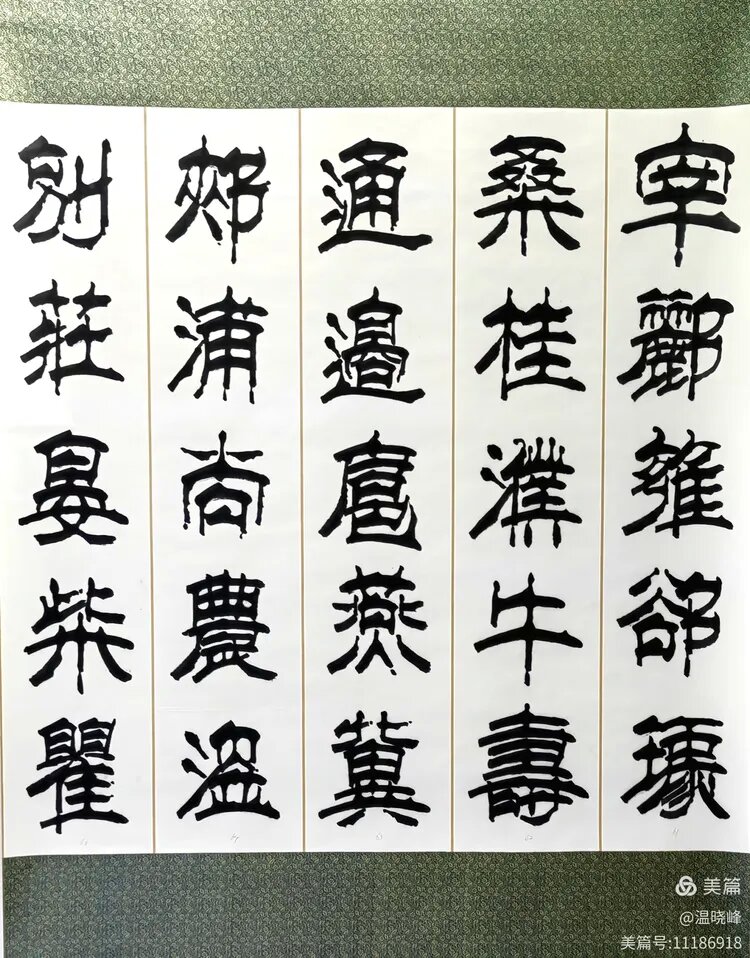 宰酈雍郤璩
桑桂濮牛壽
通邊扈燕冀
郟浦尚農溫
別莊晏柴瞿
美篇
@温晓峰
美篇号:11186918